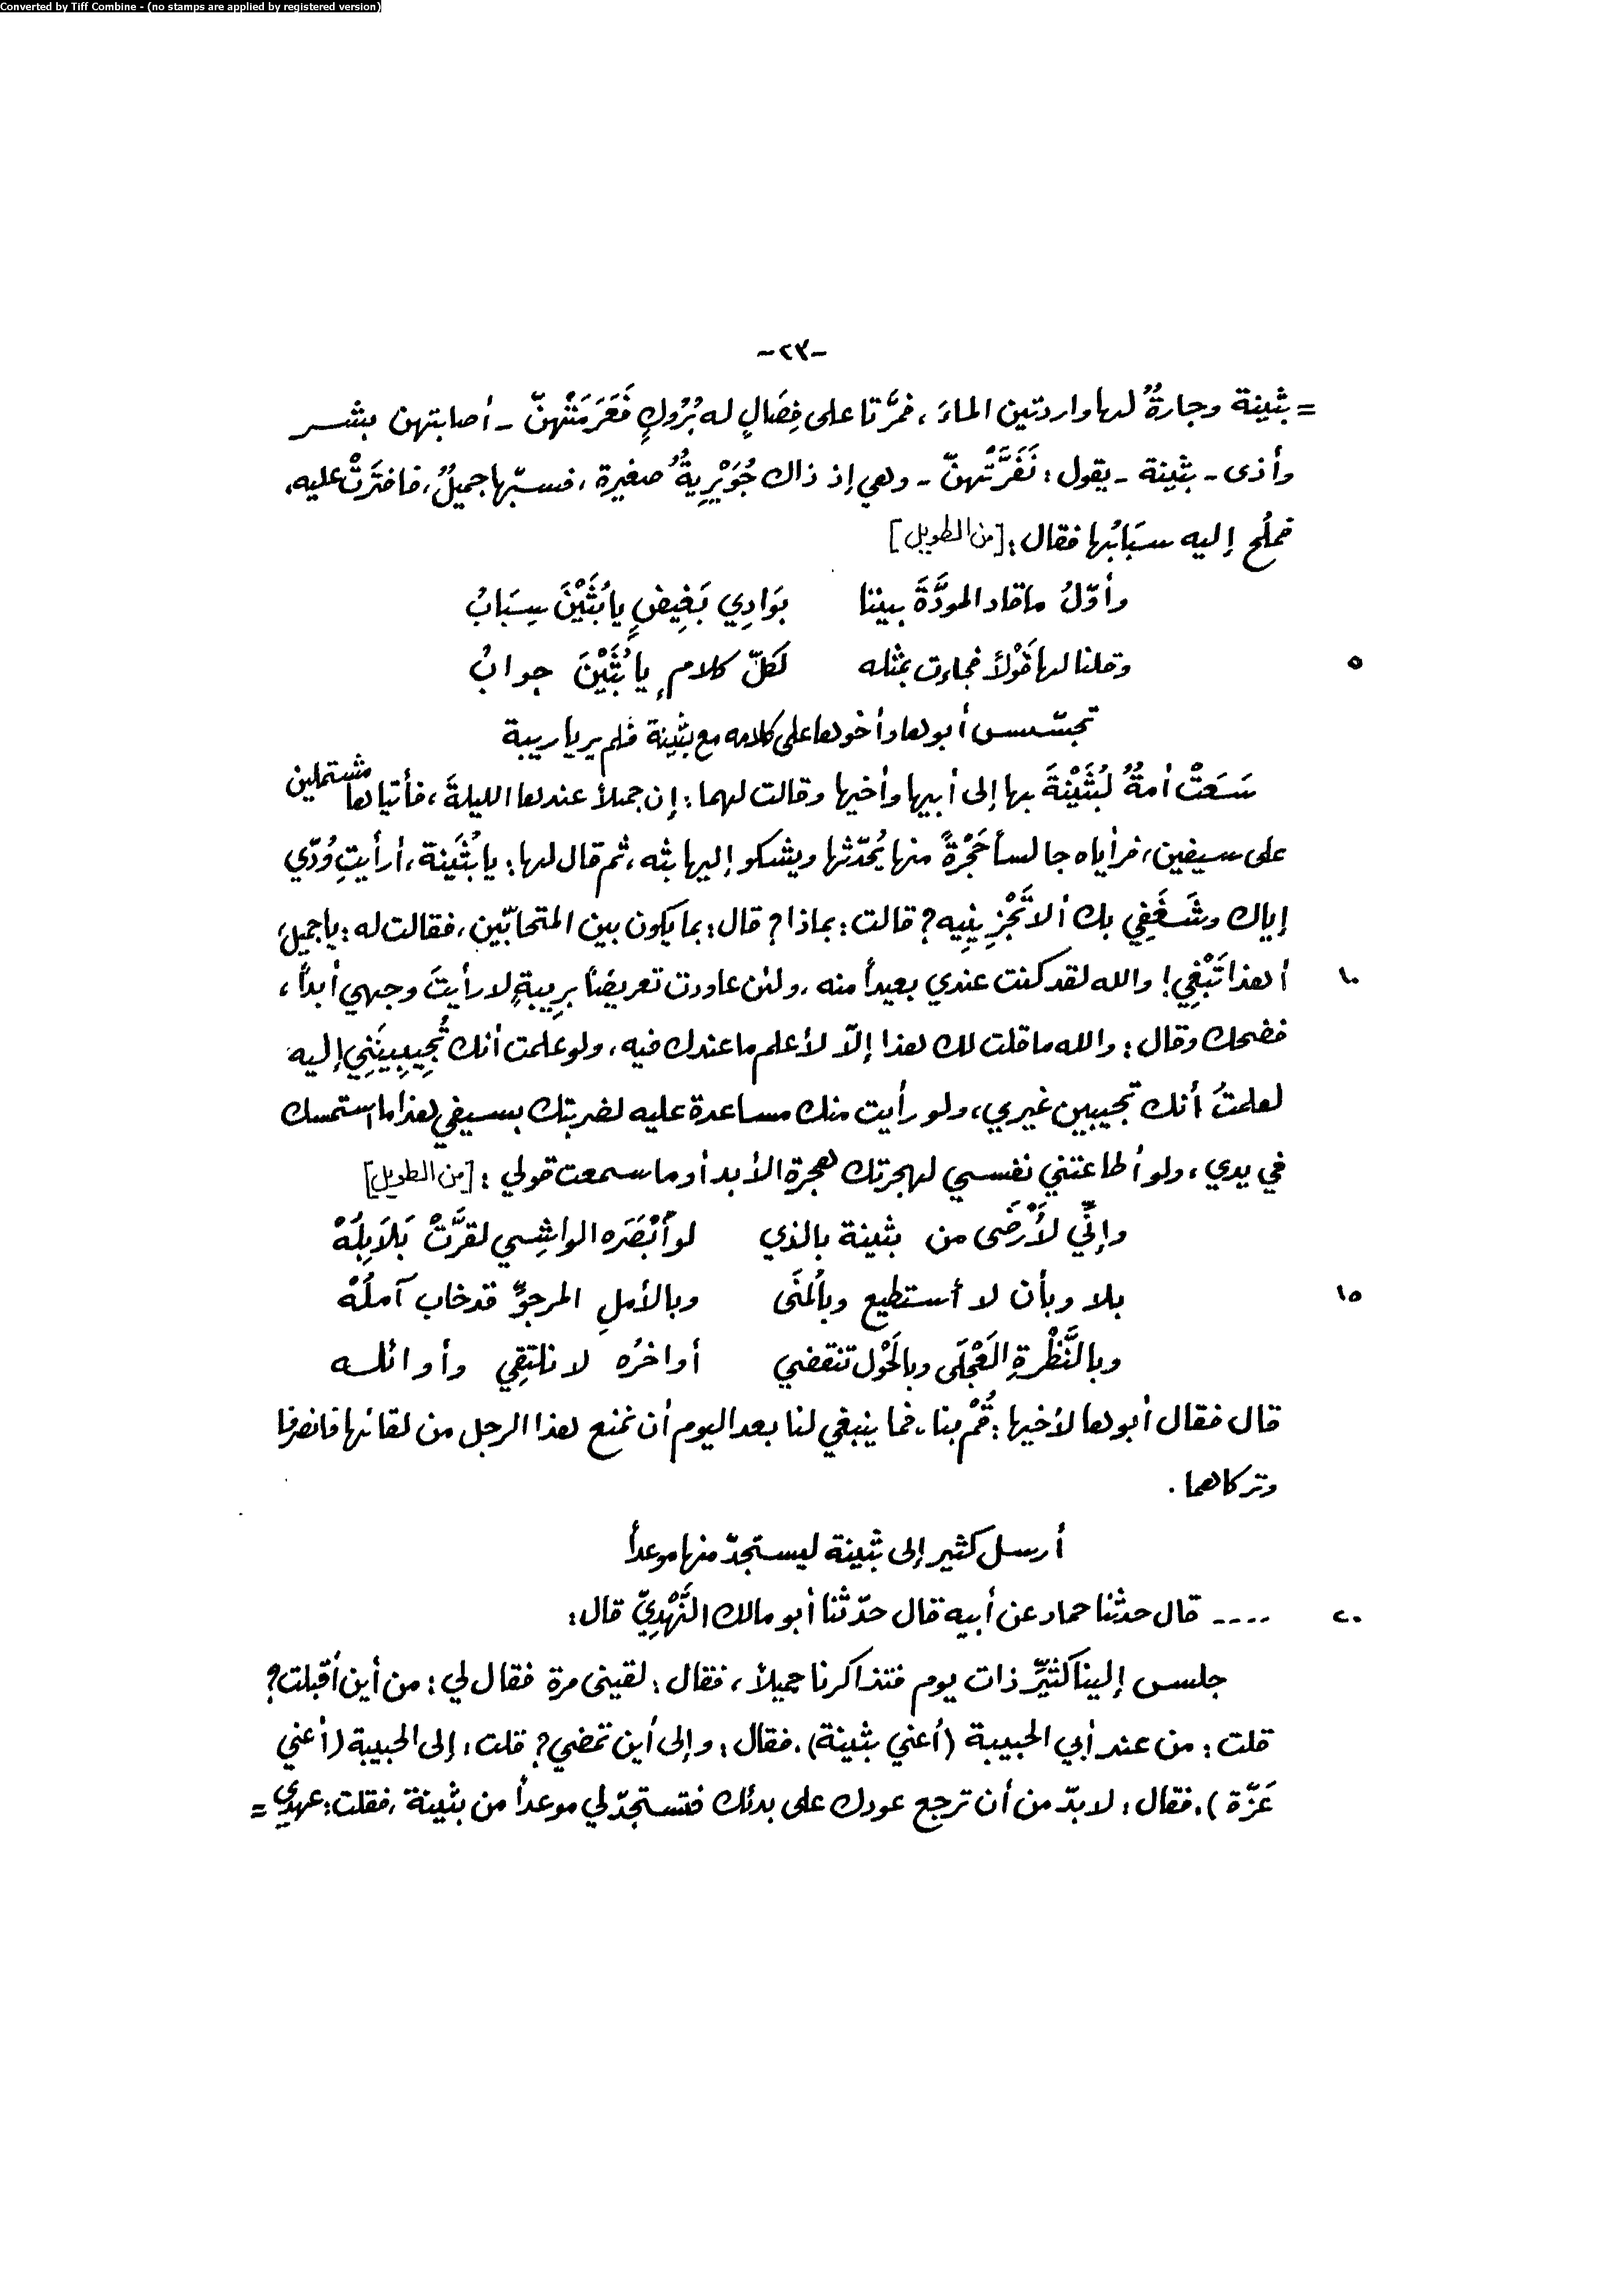 Converted by Tiff Combine - (no stamps are applied by registered version)
-٢٣-
= بثينة وجارةٌ لها واردتين الماءَ، فمرَّتا على فِصَالٍ له بُرُوكٍ فَعَرَمَتْهنّ - أصابتهن بشر
وأذى - بثينة - يقول: نَفَّرَتْهنّ - وهي إذ ذاك جُوَيْرِيةٌ صغيرة، فسبّها جميلٌ، فافترَتْ عليه،
فملُح إليه سبَابُها فقال: [من الطويل]
وأوّلُ ما قاد المودَّةَ بيننا بوَادِي بَغِيضٍ يا بُثَيْنَ سِبَابُ
٥ وقلنا لها قَوْلاً فجاءت بمثله لكلّ كلامٍ يا بُثَيْنَ جوابُ
تجسّس أبوها وأخوها على كلامه مع بثينة فلم يريا ريبة
سَعَتْ أمةٌ لبُثَيْنةَ بها إلى أبيها وأخيها وقالت لهما: إن جميلاً عندها الليلةَ، فأتياها مشتملين
على سيفين، فرأياه جالساً حَجْرةً منها يُحدّثها ويشكو إليها بثه، ثم قال لها: يا بُثَينة، أرأيتِ وُدّي
إياك وشَغَفِي بك ألا تَجْزِينِيه؟ قالت: بماذا؟ قال: بما يكون بين المتحابّين، فقالت له: يا جميلُ
١٠ أهذا تَبْغِي! والله لقد كنت عندي بعيداً منه، ولئن عاودت تعريضاً بريبةٍ لا رأيتَ وجهي أبداً،
فضحك وقال: والله ما قلت لك هذا إلّا لأعلم ما عندك فيه، ولو علمت أنك تُجِيبِينَنِي إليه
لعلمتُ أنك تجيبين غيري، ولو رأيت منك مساعدة عليه لضربتك بسيفي هذا ما استمسك
في يدي، ولو أطاعتني نفسي لهجرتك هجرة الأبد أو ما سمعت قولي: [من الطويل]
وإنِّي لأَرْضَى من بثينة بالذي لو أبْصَرَه الواشِي لقرَّتْ بَلَابِلُهْ
١٥ بلا وبأن لا أستطيع وبالمنَى وبالأملِ المرجوِّ قد خاب آملُهْ
وبالنَّظْرةِ العَجْلَى وبالحَوْل تنقضي أواخرُه لا نلتقِي وأوائله
قال فقال أبوها لأخيها: قُمْ بنا، فما ينبغي لنا بعد اليوم أن نمنع هذا الرجل من لقائها فانصرفا
وتركاهما.
أرسل كثير إلى بثينة ليستجدّ منها موعداً
٢٠ ---- قال حدثنا حماد عن أبيه قال حدّثنا أبو مالك النَّهْدِيّ قال:
جلس إلينا كثيِّر ذات يوم فتذاكرنا جميلاً، فقال: لقيني مرة فقال لي: من أين أقبلت؟
قلت: من عند أبي الحبيبة (أعني بثينة)، فقال: وإلى أين تمضي؟ قلت: إلى الحبيبة (أعني
عَزّة)، فقال: لا بدّ من أن ترجع عودك على بدئك فتستجدّ لي موعداً من بثينة، فقلت: عهدي =